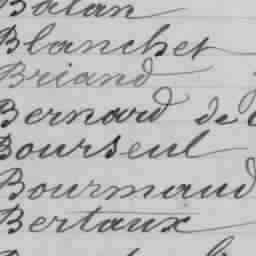 Balan
Blanchet
Briand
Bernard de
Bourseul
Bourmaud
Bertaux